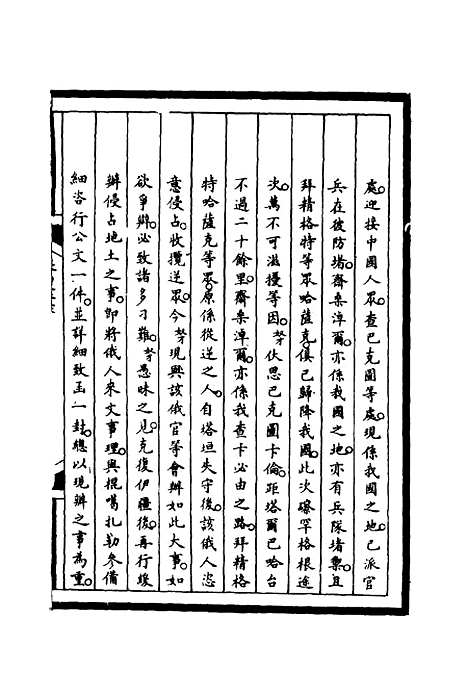 處迎接中國人眾查巴克圖等處現係我國之地已派官
兵在彼防堵齋桑淖爾亦係我國之地亦有兵隊堵禦且
拜精格特等眾哈薩克俱已歸降我國此次瓈罕格根途
次萬不可滋擾等因芳伏思巴克圖卡倫距塔爾巴哈台
不過二十餘里齋桑淖爾亦係我查卡必由之路拜精格
特哈薩克等眾原係從逆之人自塔垣失守後該俄人恣
意侵占收攬逆眾今芳現與該俄官等會辦如此大事如
欲爭辦必致諸多刁難芳愚昧之見克復伊疆後再行竣
辦侵占地土之事即將俄人來文事理與棍噶扎勒參備
細咨行公文一件並詳細致函一封總以現辦之事為重